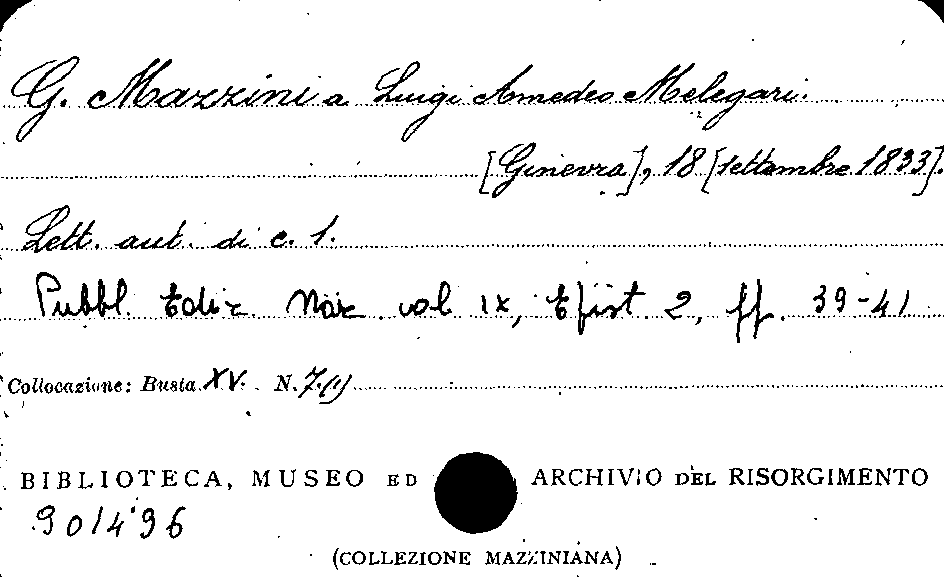 G. Mazzini a Luigi Amedeo Melegari.
[Ginevra], 18 [settembre 1833].
Lett. aut. di c. 1.
Pubbl. Ediz. Naz. vol IX, Epist. 2, pp. 39-41
Collocazione: Busta XV. N. 7.(1)
BIBLIOTECA, MUSEO ED ARCHIVIO DEL RISORGIMENTO
901496
(COLLEZIONE MAZZINIANA)